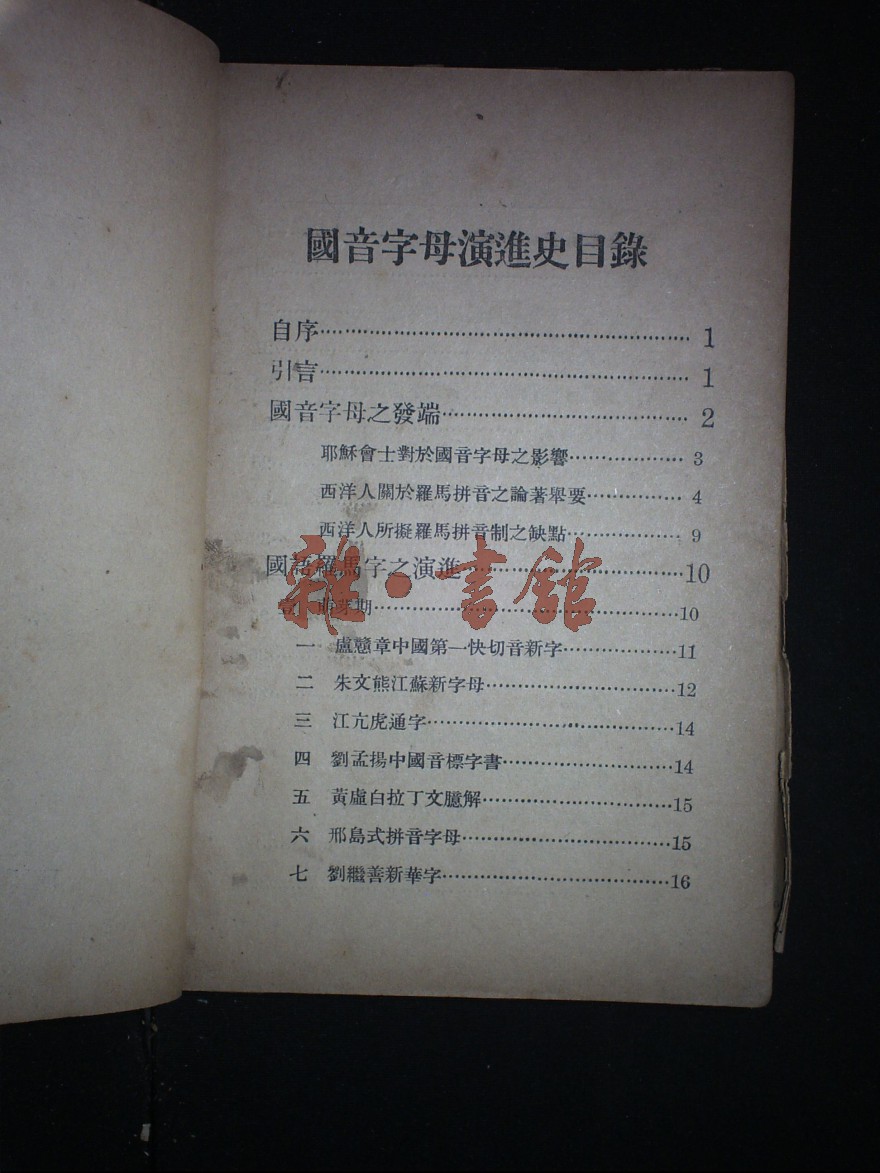 國音字母演進史目錄
自序 1
引言 1
國音字母之發端 2
耶穌會士對於國音字母之影響 3
西洋人關於羅馬拼音之論著舉要 4
西洋人所擬羅馬拼音制之缺點 9
國語羅馬字之演進 10
壹 萌芽期 10
一 盧戇章中國第一快切音新字 11
二 朱文熊江蘇新字母 12
三 江亢虎通字 14
四 劉孟揚中國音標字書 14
五 黃虛白拉丁文臆解 15
六 邢島式拼音字母 15
七 劉繼善新華字 16
雜·書館